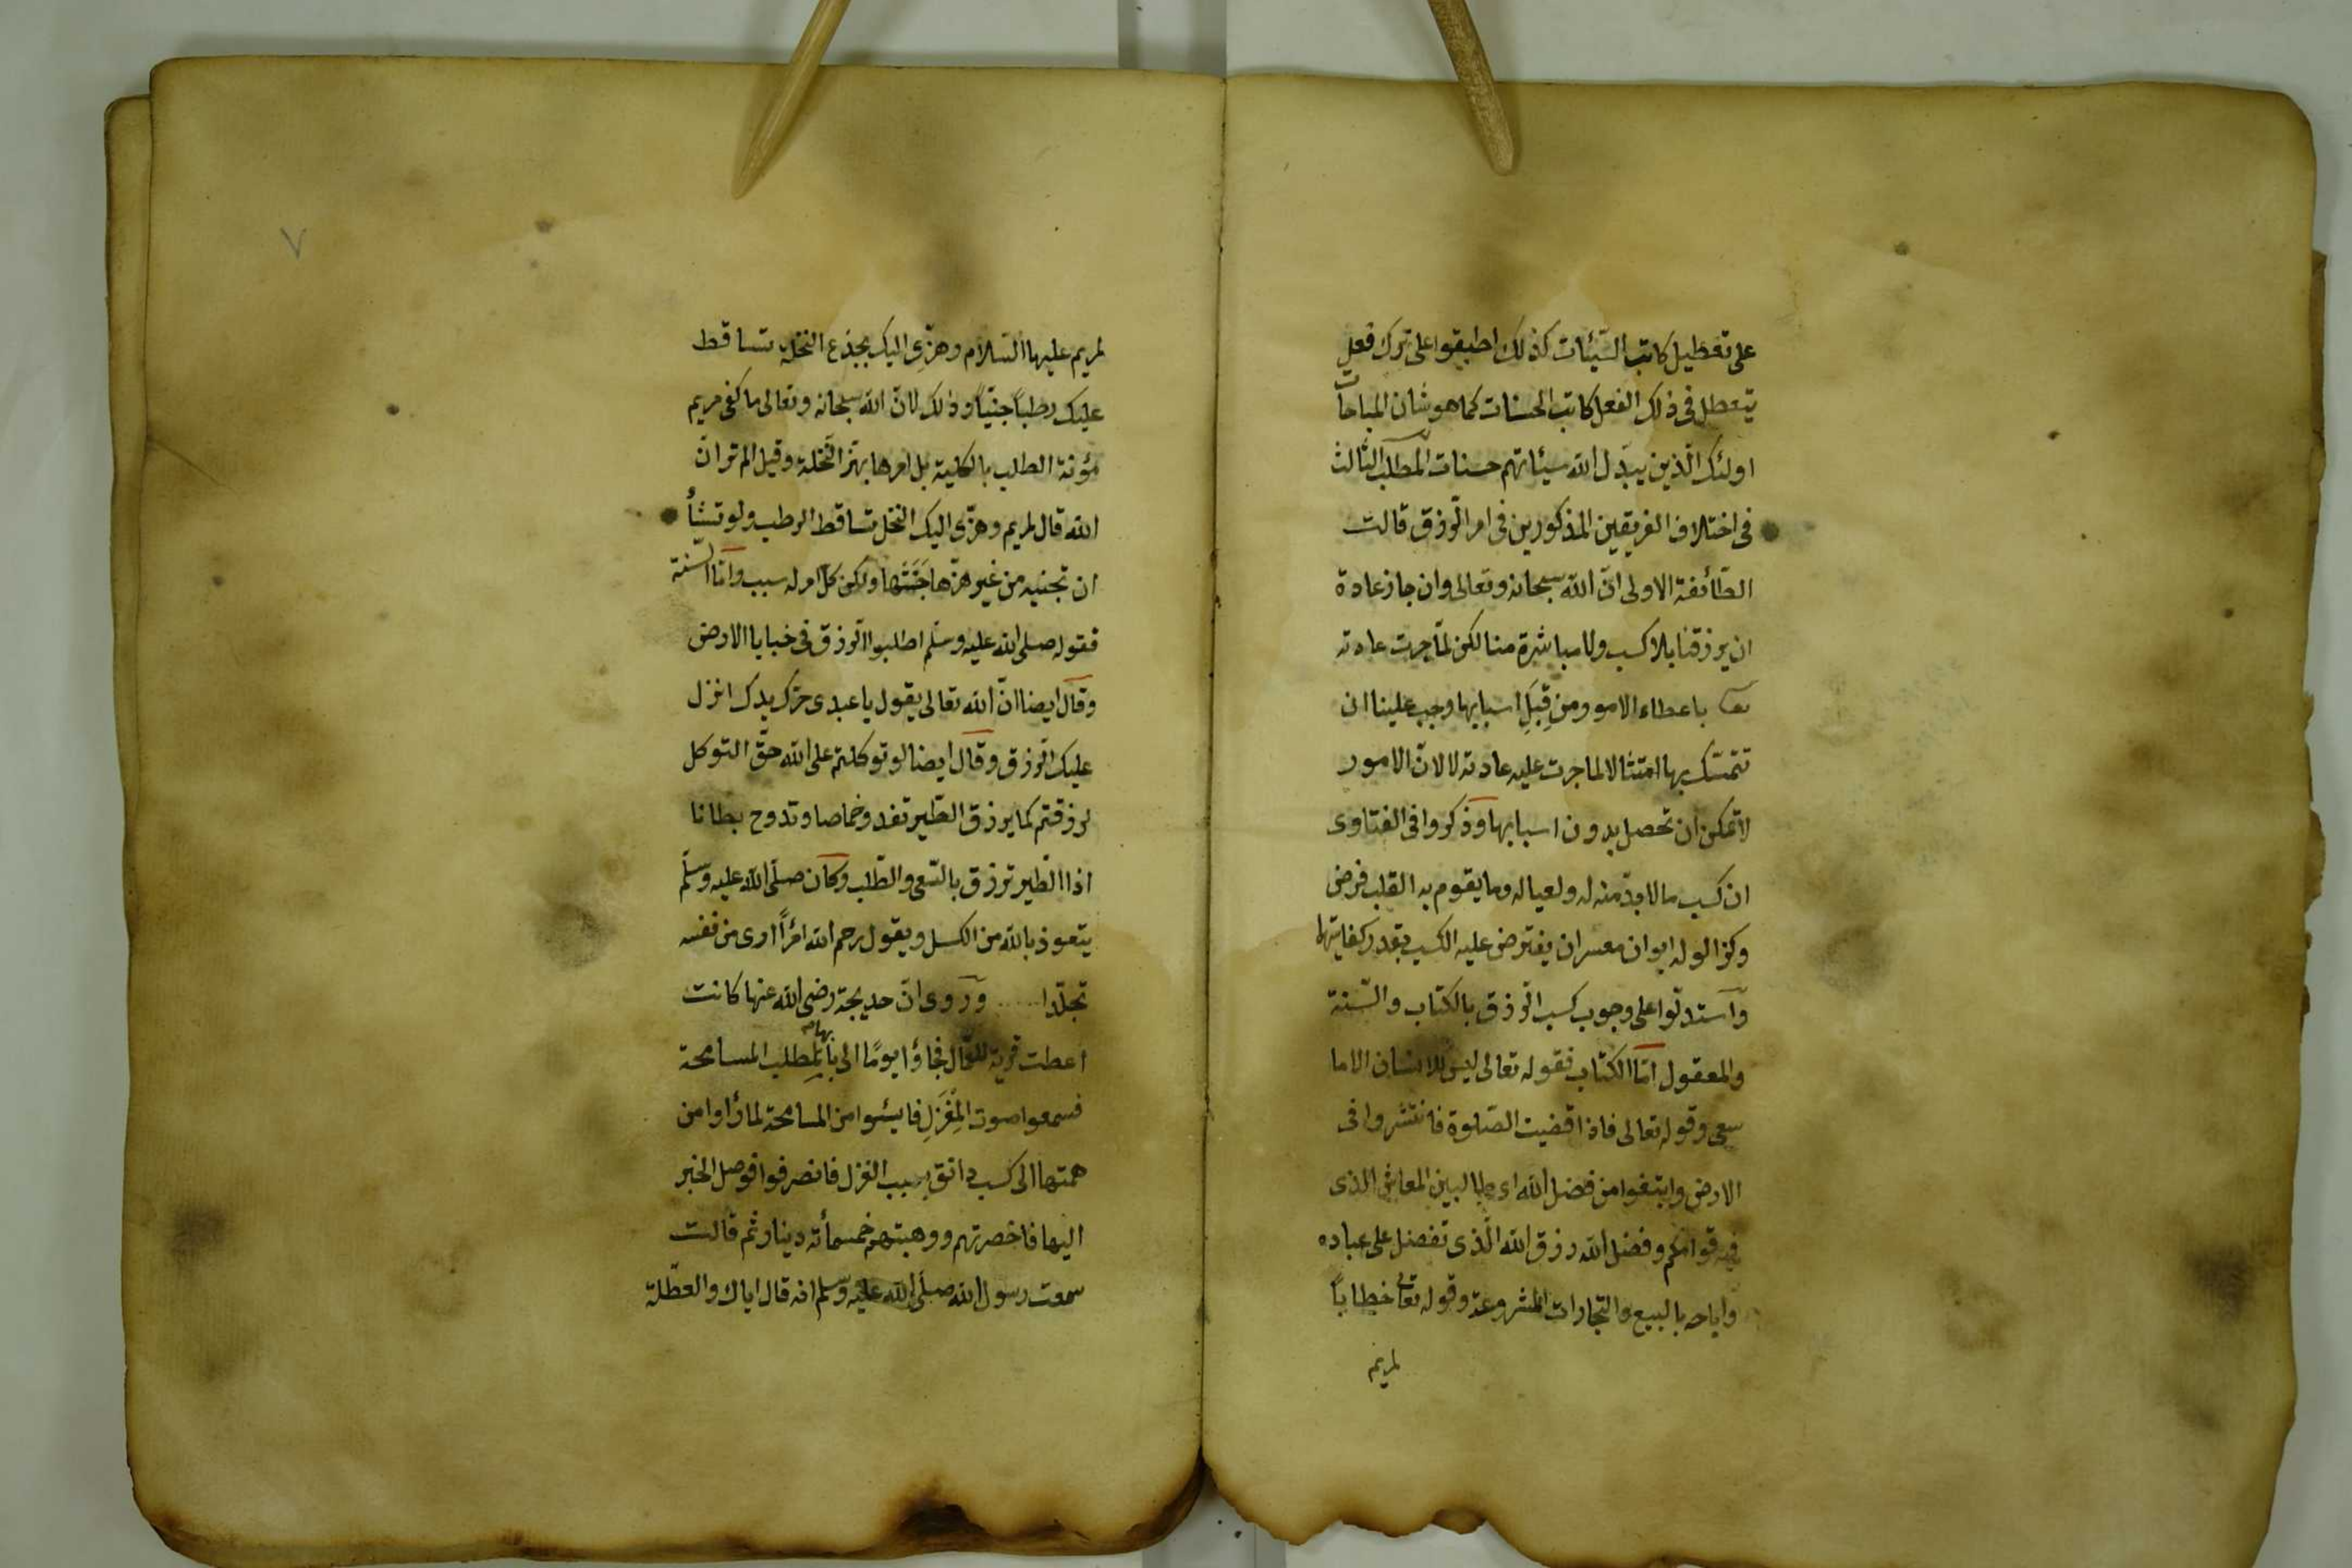 على تعطيل كاتب السّيّئات كذلك اطبقوا على ترك فعل
يتعطل فى ذلك الفعل كاتب الحسنات كما هو شان المباحات
اولئك الّذين يبدّل الله سيئاتهم حسنات المطلب الثالث
فى اختلاف الفريقين المذكورين فى امر الرّزق قالت
الطّائفة الاولى انّ الله سبحانه وتعالى وان جاز عادة
ان يرزقنا بلا كسب ولا مباشرة منا لكن لمّا جرت عادته
باعطاء الامور من قِبَلِ اسبابها وجب علينا ان
نتمسّك بها امتثالا لما جرت عليه عادته لا لانّ الامور
لا تمكن ان تحصل بدون اسبابها وذكروا فى الفتاوى
ان كسب ما لا بدّ منه له ولعياله وما يقوم به القلب فرض
وكذا لو له ابوان معسران يفترض عليه الكسب بقدر كفايتهما
واستدلّوا على وجوب كسب الرّزق بالكتاب والسّنة
والمعقول امّا الكتاب فقوله تعالى ليس للانسان الا ما
سعى وقوله تعالى فاذا قضيت الصّلوة فانتشروا فى
الارض وابتغوا من فضل الله اى طالبين المعاش الذى
فيه قوامكم وفضل الله رزق الله الّذى تفضل على عباده
واباحه بالبيع والتجارات المشروعة وقوله تعالى خطاباً
لمريم
٧
لمريم عليها السّلام وهزّى اليك بجذع النخلة تساقط
عليك رطباً جنيّاً وذلك لانّ الله سبحانه وتعالى ما كفى مريم
مؤنة الطلب بالكلية بل امرها بهزّ النّخلة وقيل الم تر انّ
الله قال لمريم وهزّى اليك النخل تساقط الرطب ولو تشأ
ان تجنيه من غير هزّها جَنَتْها ولكن كلّ امر له سبب وامّا السّنة
فقوله صلى الله عليه وسلّم اطلبوا الرّزق فى خبايا الارض
وقال ايضا انّ الله تعالى يقول يا عبدى حرّك يدك انزل
عليك الرّزق وقال ايضا لو توكلتم على الله حقّ التوكل
لرزقتم كما يرزق الطّير تغدو خماصا وتروح بطانا
اذا الطّير ترزق بالسّعى والطّلب وكان صلّى الله عليه وسلّم
يتعوذ بالله من الكسل ويقول رحم الله امرأً ارى من نفسه
تجلّدا ..... وروى انّ خديجة رضى الله عنها كانت
اعطت قرية للعمّال فجاؤا يومًا الى بابها لطلب المسامحة
فسمعوا صوت المِغْزَلِ فايئسوا من المسامحة لما رأوا من
همتها الى كسب دانق بسبب الغزل فانصرفوا فوصل الخبر
اليها فاحضرتهم ووهبتهم خمسمأة دينار ثم قالت
سمعت رسول الله صلّى الله عليه وسلّم انه قال اياك والعطلة